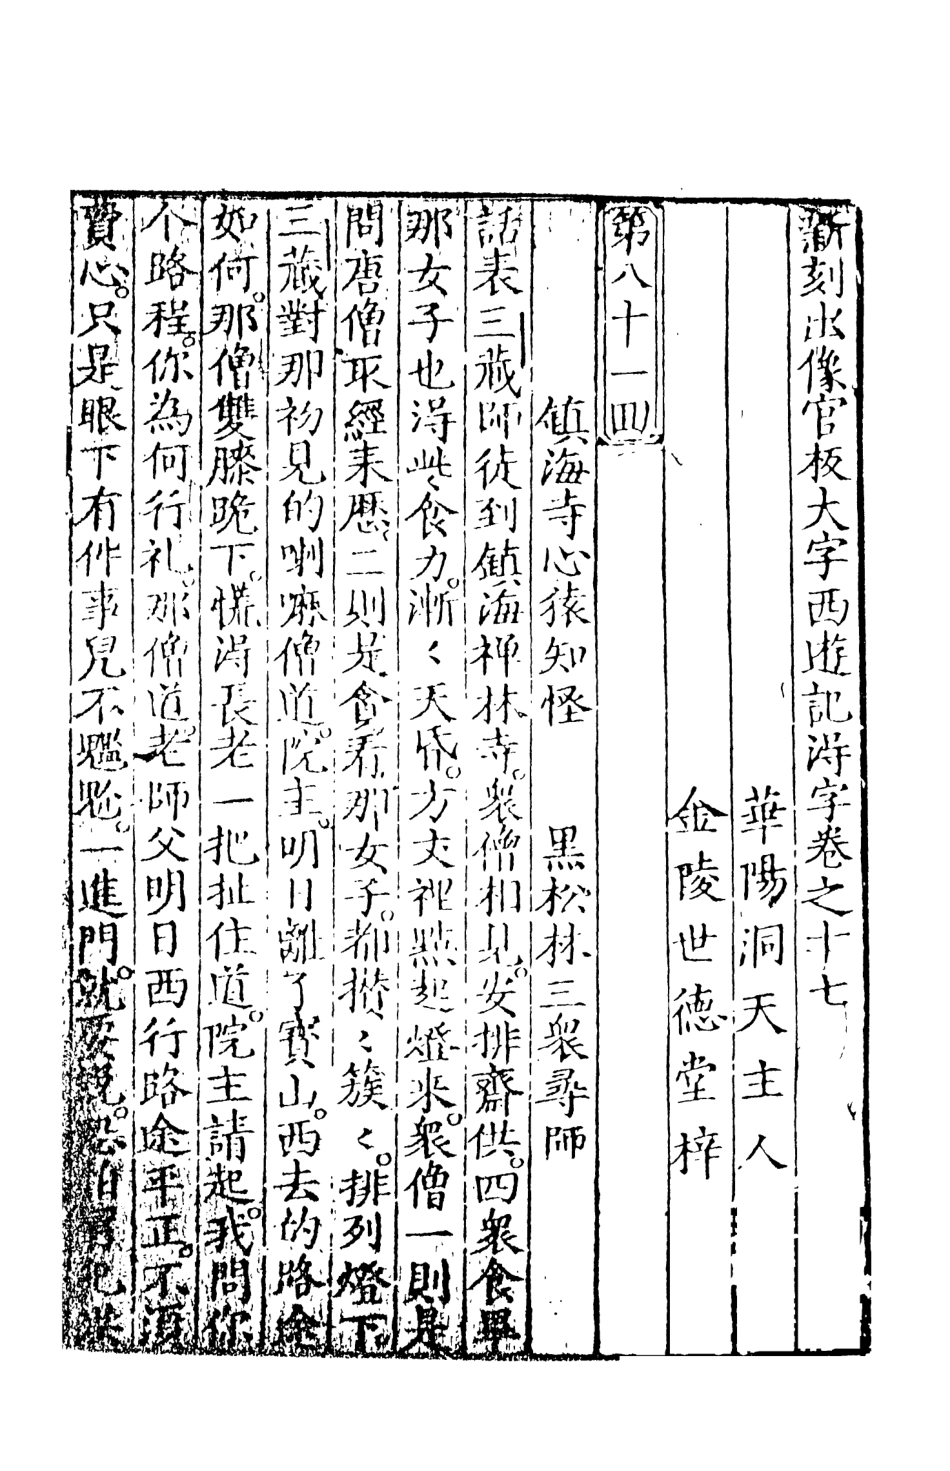 新刻出像官板大字西遊記淂字卷之十七
華陽洞天主人
金陵世德堂梓
第八十一回
鎮海寺心猿知怪 黑松林三衆尋師
話表三藏師徒到鎮海禅林寺。衆僧相見。安排齋供。四衆食畢
那女子也淂些食力。漸〻天昏。方丈裡點起燈來。衆僧一則是
問唐僧取經来歷。二則是貪看那女子。都攅〻簇〻。排列燈下
三藏對那初見的喇嘛僧道。院主。明日離了寳山。西去的路途
如何。那僧雙膝跪下。慌淂長老一把扯住道。院主請起。我問你
个路程。你為何行礼。那僧道。老師父明日西行。路途平正。不須
費心。只是眼下有件事兒不尷尬。一進門。就要說。恐怕冐犯洪